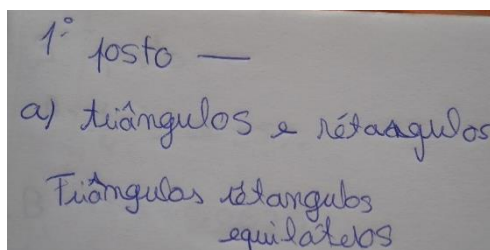 1° posto —
a) triângulos e rétangulos
Triângulos rétangulos
equiláteros